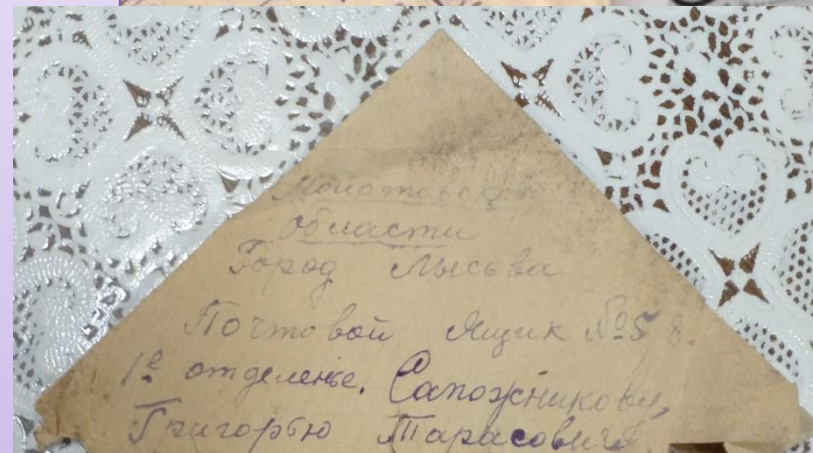 Молотовской
области
Город Лысьва
Почтовой Ящик № 58.
1е отделенье. Сапожникову,
Григорью Тарасовичу